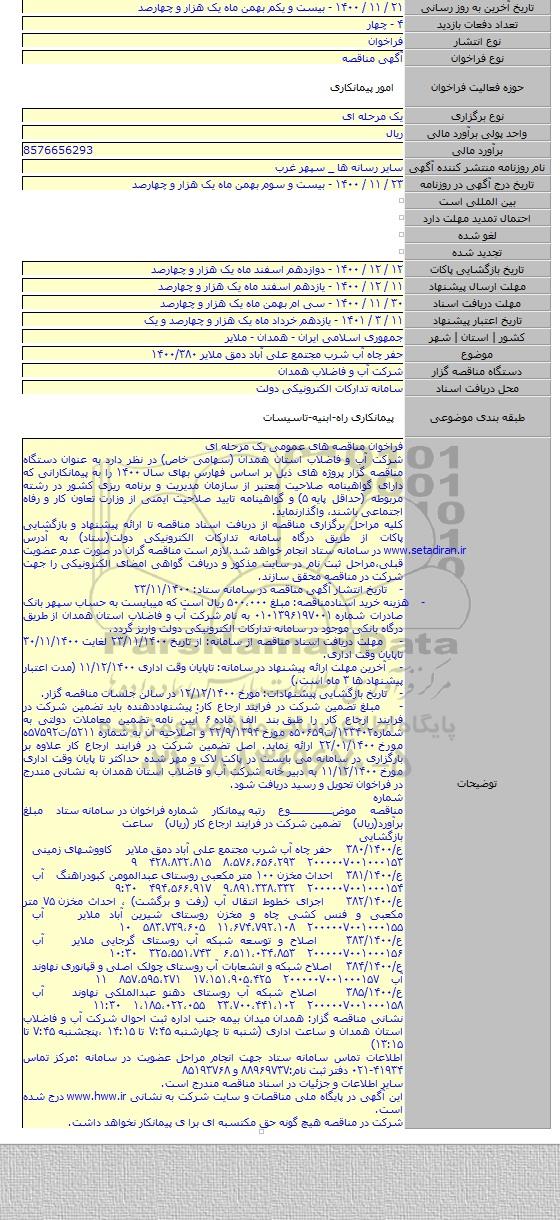 تاریخ آخرین به روز رسانی ۲۱ / ۱۱ / ۱۴۰۰ - بیست و یکم بهمن ماه یک هزار و چهارصد
تعداد دفعات بازدید ۴ - چهار
نوع انتشار فراخوان
نوع فراخوان آگهی مناقصه
حوزه فعالیت فراخوان امور پیمانکاری
نوع برگزاری یک مرحله ای
واحد پولی برآورد مالی ریال
برآورد مالی 8576656293
نام روزنامه منتشر کننده آگهی سایر رسانه ها _ سپهر غرب
تاریخ درج آگهی در روزنامه ۲۳ / ۱۱ / ۱۴۰۰ - بیست و سوم بهمن ماه یک هزار و چهارصد
بین المللی است
احتمال تمدید مهلت دارد
لغو شده
تجدید شده
تاریخ بازگشایی پاکات ۱۲ / ۱۲ / ۱۴۰۰ - دوازدهم اسفند ماه یک هزار و چهارصد
مهلت ارسال پیشنهاد ۱۱ / ۱۲ / ۱۴۰۰ - یازدهم اسفند ماه یک هزار و چهارصد
مهلت دریافت اسناد ۳۰ / ۱۱ / ۱۴۰۰ - سی ام بهمن ماه یک هزار و چهارصد
تاریخ اعتبار پیشنهاد ۱۱ / ۳ / ۱۴۰۱ - یازدهم خرداد ماه یک هزار و چهارصد و یک
کشور | استان | شهر جمهوری اسلامی ایران - همدان - ملایر
موضوع حفر چاه آب شرب مجتمع علی آباد دمق ملایر ۱۴۰۰/۳۸۰
دستگاه مناقصه گزار شرکت آب و فاضلاب همدان
محل دریافت اسناد سامانه تدارکات الکترونیکی دولت
طبقه بندی موضوعی پیمانکاری راه-ابنیه-تاسیسات
توضیحات
فراخوان مناقصه های عمومی یک مرحله ای
شرکت آب و فاضلاب استان همدان (سهامی خاص) در نظر دارد به عنوان دستگاه
مناقصه گزار پروژه های ذیل بر اساس فهارس بهای سال ۱۴۰۰ را به پیمانکارانی که
دارای گواهینامه صلاحیت معتبر از سازمان مدیریت و برنامه ریزی کشور در رشته
مربوطه (حداقل پایه ۵) و گواهینامه تایید صلاحیت ایمنی از وزارت تعاون کار و رفاه
اجتماعی باشند، واگذارنماید.
کلیه مراحل برگزاری مناقصه از دریافت اسناد مناقصه تا ارائه پیشنهاد و بازگشایی
پاکات از طریق درگاه سامانه تدارکات الکترونیکی دولت(ستاد) به آدرس
www.setadiran.ir در سامانه ستاد انجام خواهد شد.لازم است مناقصه گران در صورت عدم عضویت
قبلی،مراحل ثبت نام در سایت مذکور و دریافت گواهی امضای الکترونیکی را جهت
شرکت در مناقصه محقق سازند.
- تاریخ انتشار آگهی مناقصه در سامانه ستاد: ۲۳/۱۱/۱۴۰۰
- هزینه خرید اسنادمناقصه: مبلغ ۵۰۰،۰۰۰ ریال است که میبایست به حساب سپهر بانک
صادرات شماره ۰۱۰۱۳۹۶۱۹۷۰۰۱ به نام شرکت آب و فاضلاب استان همدان از طریق
درگاه بانکی موجود در سامانه تدارکات الکترونیکی دولت واریز گردد.
- مهلت دریافت اسناد مناقصه از سامانه: از تاریخ ۲۳/۱۱/۱۴۰۰ لغایت ۳۰/۱۱/۱۴۰۰
تاپایان وقت اداری.
- آخرین مهلت ارائه پیشنهاد در سامانه: تاپایان وقت اداری ۱۱/۱۲/۱۴۰۰ (مدت اعتبار
پیشنهادها ۳ ماه است.)
- تاریخ بازگشایی پیشنهادات: مورخ ۱۲/۱۲/۱۴۰۰ در سالن جلسات مناقصه گزار.
- مبلغ تضمین شرکت در فرایند ارجاع کار: پیشنهاددهنده باید تضمین شرکت در
فرایند ارجاع کار را طبق بند الف ماده ۶ آیین نامه تضمین معاملات دولتی به
شماره۱۲۳۴۰۲/ت۵۰۶۵۹ه مورخ ۲۲/۹/۱۳۹۴ و اصلاحیه آن به شماره ۵۲۱۱/ت۵۷۵۹۲ه
مورخ ۲۲/۰۱/۱۴۰۰ ارائه نماید. اصل تضمین شرکت در فرایند ارجاع کار علاوه بر
بارگزاری در سامانه می بایست در پاکت لاک و مهر شده حداکثر تا پایان وقت اداری
مورخ ۱۱/۱۲/۱۴۰۰ به دبیرخانه شرکت آب و فاضلاب استان همدان به نشانی مندرج
در فراخوان تحویل و رسید دریافت شود.
شماره
مناقصه موضـــــــوع رتبه پیمانکار شماره فراخوان در سامانه ستاد مبلغ
برآورد(ریال) تضمین شرکت در فرایند ارجاع کار (ریال) ساعت
بازگشایی
ع/۳۸۰/۱۴۰۰ حفر چاه آب شرب مجتمع علی آباد دمق ملایر کاووشهای زمینی
۲۰۰۰۰۰۷۰۰۱۰۰۰۱۵۳ ۸،۵۷۶،۶۵۶،۲۹۳ ۴۲۸،۸۳۲،۸۱۵ ۹
ع/۳۸۱/۱۴۰۰ احداث مخزن ۱۰۰ متر مکعبی روستای عبدالمومن کبودراهنگ آب
۲۰۰۰۰۰۷۰۰۱۰۰۰۱۵۴ ۹،۸۹۱،۳۳۸،۳۳۲ ۴۹۴،۵۶۶،۹۱۷ ۹:۳۰
ع/۳۸۲/۱۴۰۰ اجرای خطوط انتقال آب (رفت و برگشت) ، احداث مخزن ۷۵ متر
مکعبی و فنس کشی چاه و مخزن روستای شیرین آباد ملایر آب
۲۰۰۰۰۰۷۰۰۱۰۰۰۱۵۵ ۱۱،۶۷۴،۷۹۲،۱۰۸ ۵۸۳،۷۳۹،۶۰۵ ۱۰
ع/۳۸۳/۱۴۰۰ اصلاح و توسعه شبکه آب روستای گرجایی ملایر آب
۲۰۰۰۰۰۷۰۰۱۰۰۰۱۵۶ ۶،۵۱۱،۰۳۴،۸۵۳ ۳۲۵،۵۵۱،۷۴۳ ۱۰:۳۰
ع/۳۸۴/۱۴۰۰ اصلاح شبکه و انشعابات آب روستای چولک اصلی و قپانوری نهاوند
آب ۲۰۰۰۰۰۷۰۰۱۰۰۰۱۵۷ ۱۷،۱۵۱،۹۰۵،۴۲۵ ۸۵۷،۵۹۵،۲۷۱ ۱۱
ع/۳۸۵/۱۴۰۰ اصلاح شبکه آب روستای دهنو عبدالملکی نهاوند آب
۲۰۰۰۰۰۷۰۰۱۰۰۰۱۵۸ ۲۳،۷۰۰،۴۴۱،۱۰۲ ۱،۱۸۵،۰۲۲،۰۵۵ ۱۱:۳۰
نشانی مناقصه گزار: همدان میدان بیمه جنب اداره ثبت احوال شرکت آب و فاضلاب
استان همدان و ساعت اداری (شنبه تا چهارشنبه ۷:۴۵ تا ۱۴:۱۵ ،پنجشنبه ۷:۴۵ تا
۱۳:۱۵)
اطلاعات تماس سامانه ستاد جهت انجام مراحل عضویت در سامانه :مرکز تماس
۴۱۹۳۴-۰۲۱ دفتر ثبت نام:۸۸۹۶۹۷۳۷ و ۸۵۱۹۳۷۶۸
سایر اطلاعات و جزئیات در اسناد مناقصه مندرج است.
این آگهی در پایگاه ملی مناقصات و سایت شرکت به نشانی www.hww.ir درج شده
است.
شرکت در مناقصه هیچ گونه حق مکتسبه ای برا ی پیمانکار نخواهد داشت.